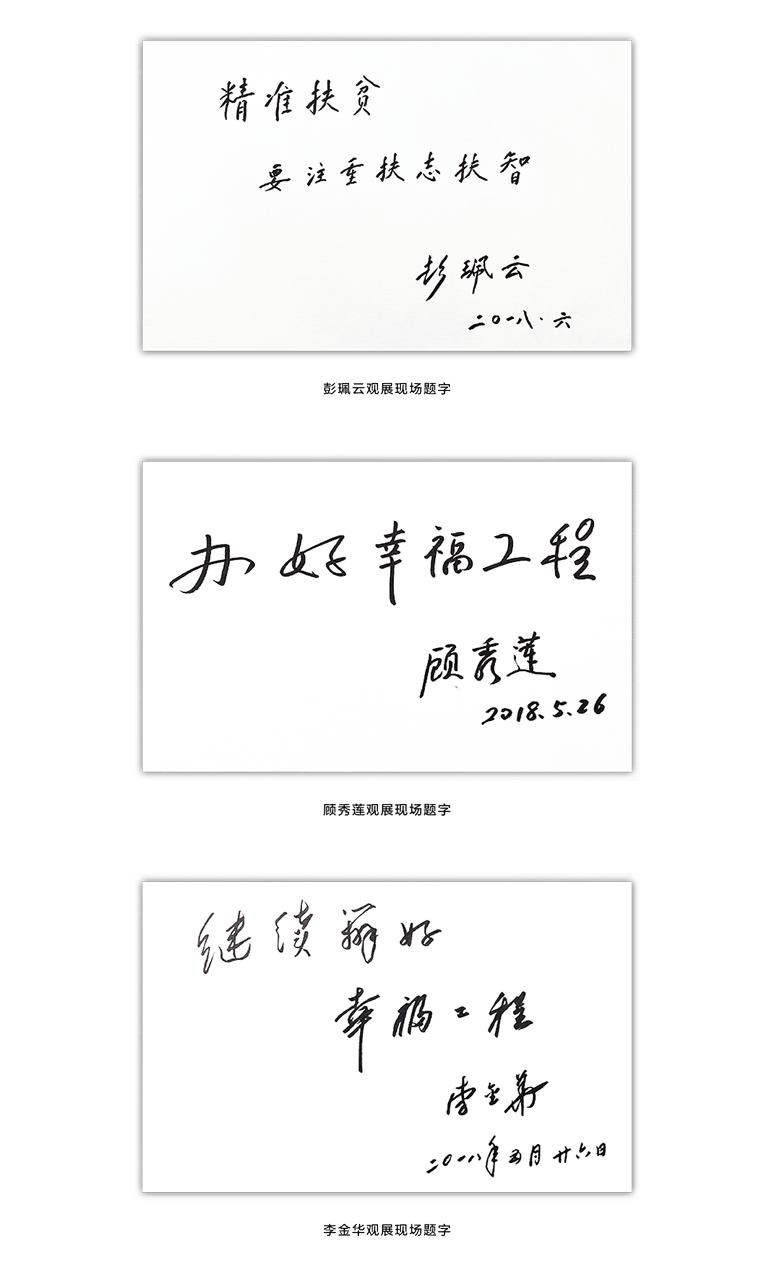 精准扶贫
要注重扶志扶智
彭珮云
二〇一八·六
彭珮云观展现场题字
办好幸福工程
顾秀莲
2018.5.26
顾秀莲观展现场题字
继续辦好
幸福工程
李金华
二〇一八年五月廿六日
李金华观展现场题字